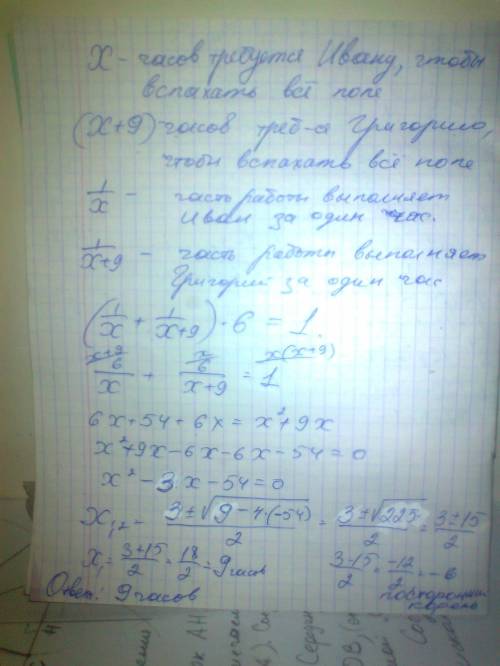 X - часов требуется Ивану, чтобы
вспахать всё поле
(x+9) - часов треб-ся Григорию,
чтобы вспахать всё поле
1/x - часть работы выполняет
Иван за один час.
1/(x+9) - часть работы выполняет
Григорий за один час
(1/x + 1/(x+9)) · 6 = 1
x+9 x x(x+9)
6/x + 6/(x+9) = 1
6x+54+6x = x²+9x
x²+9x-6x-6x-54=0
x²-3x-54=0
x₁,₂ = (3±√(9-4·(-54)))/2 = (3±√225)/2 = (3±15)/2
x₁ = (3+15)/2 = 18/2 = 9 часов (3-15)/2 = -12/2 = -6
Ответ: 9 часов посторонний
корень